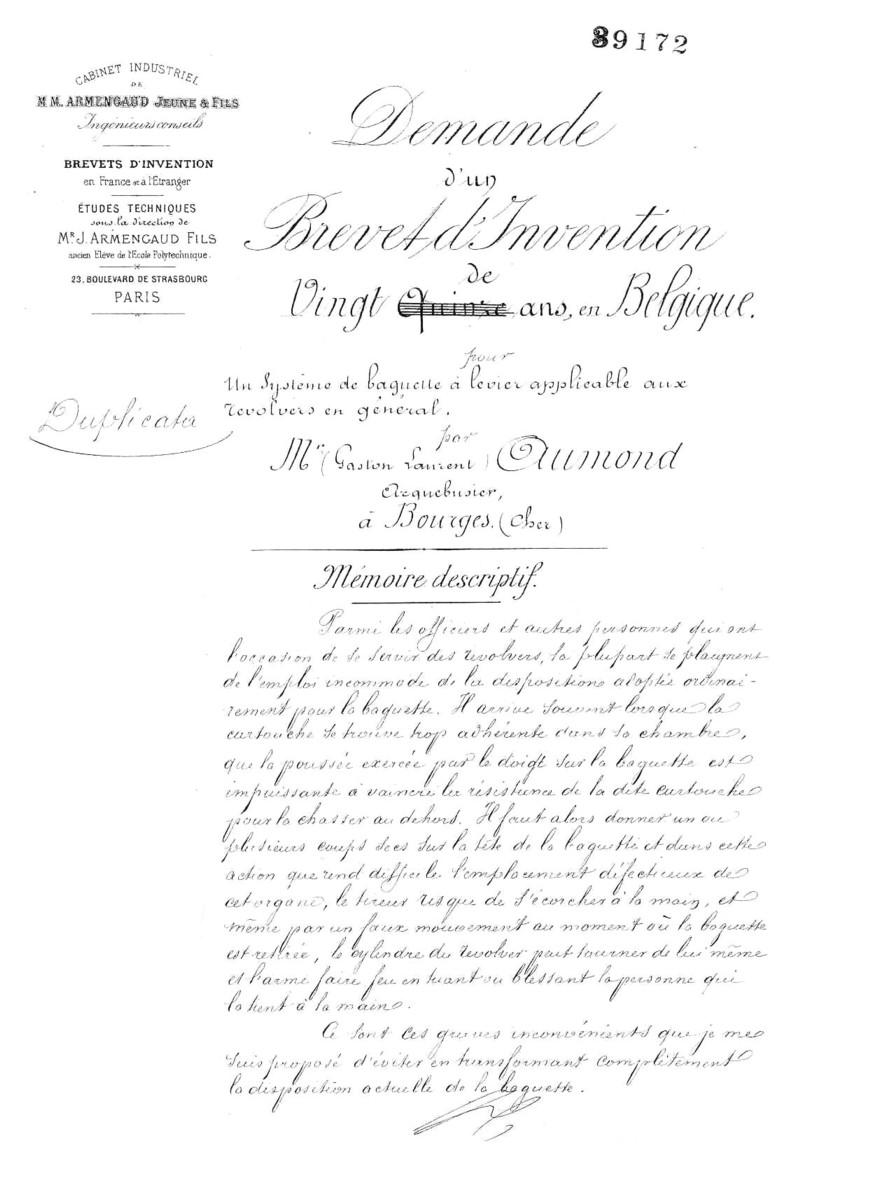 39172
CABINET INDUSTRIEL
DE
M M. ARMENGAUD JEUNE & FILS
Ingénieurs conseils
BREVETS D'INVENTION
en France et à l'Etranger
ÉTUDES TECHNIQUES
sous la direction de
Mr. J. ARMENGAUD FILS
ancien Elève de l'Ecole Polytechnique.
23. BOULEVARD DE STRASBOURG
PARIS
Duplicata
Demande
d'un
Brevet d'Invention
de
Vingt Quinze ans, en Belgique.
pour
Un Système de baguette à levier applicable aux
revolvers en général.
par
Mr. (Gaston Laurent) Aumond
Arquebusier,
à Bourges. (Cher)
Mémoire descriptif.
Parmi les officiers et autres personnes qui ont
l'occasion de se servir des revolvers, la plupart se plaignent
de l'emploi incommode de la disposition adoptée ordinai-
rement pour la baguette. Il arrive souvent lorsque la
cartouche se trouve trop adhérente dans sa chambre,
que la poussée exercée par le doigt sur la baguette est
impuissante à vaincre la résistance de la dite cartouche
pour la chasser au dehors. Il faut alors donner un ou
plusieurs coups secs sur la tête de la baguette et dans cette
action que rend difficile l'emplacement défectueux de
cet organe, le tireur risque de s'écorcher à la main, et
même par un faux mouvement au moment où la baguette
est retirée, le cylindre du revolver peut tourner de lui même
et l'arme faire feu en tuant ou blessant la personne qui
la tient à la main.
Ce sont ces graves inconvénients que je me
suis proposé d'éviter en transformant complètement
la disposition actuelle de la baguette.